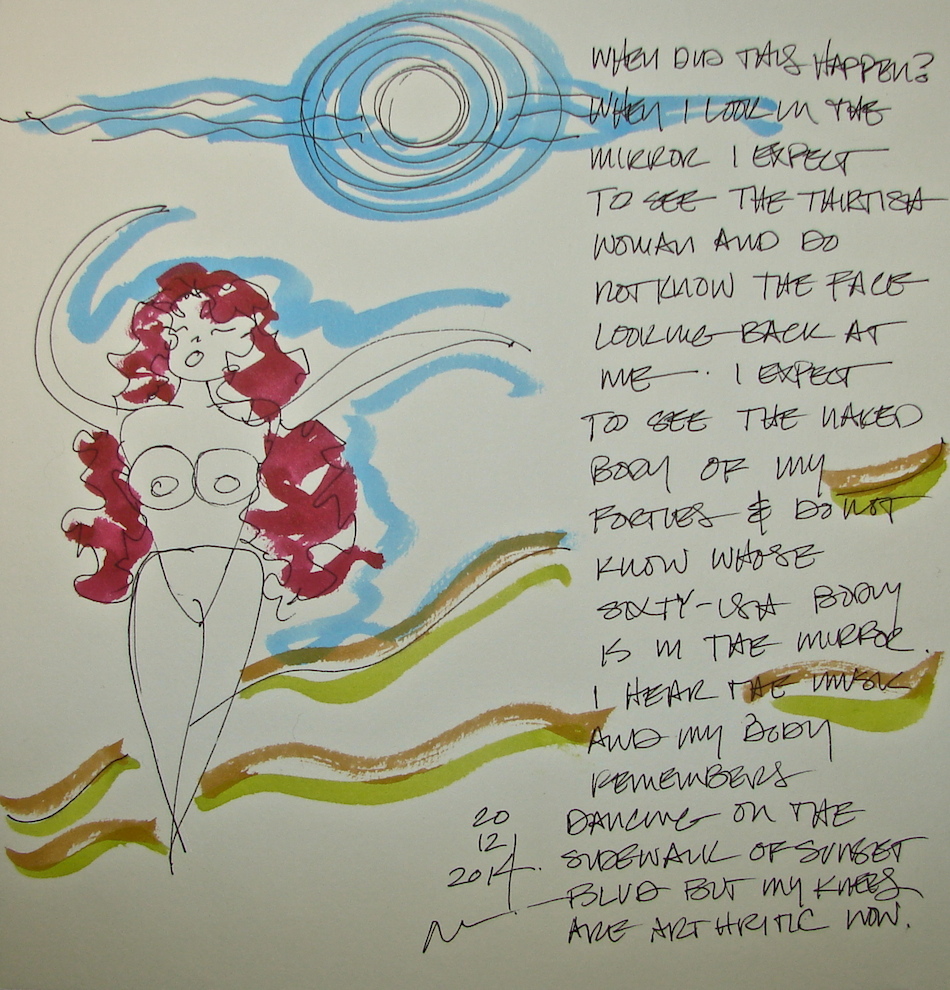 WHEN DID THIS HAPPEN?
WHEN I LOOK IN THE
MIRROR I EXPECT
TO SEE THE THIRTISH
WOMAN AND DO
NOT KNOW THE FACE
LOOKING BACK AT
ME. I EXPECT
TO SEE THE NAKED
BODY OF MY
FORTIES & DO NOT
KNOW WHOSE
SIXTY-ISH BODY
IS IN THE MIRROR.
I HEAR THE MUSIC
AND MY BODY
REMEMBERS
DANCING ON THE
SIDEWALK OF SUNSET
BLVD BUT MY KNEES
ARE ARTHRITIC NOW.
20
12
2014.